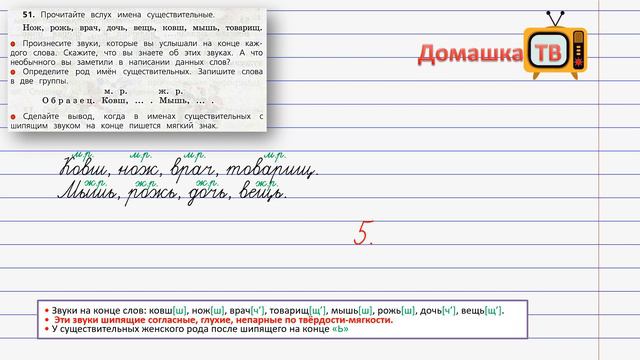 51. Прочитайте вслух имена существительные.
Нож, рожь, врач, дочь, вещь, ковш, мышь, товарищ.
Произнесите звуки, которые вы услышали на конце каж-
дого слова. Скажите, что вы знаете об этих звуках. А что
необычного вы заметили в написании данных слов?
Определите род имён существительных. Запишите слова
в две группы.
м. р. ж. р.
Образец. Ковш, ... . Мышь, ... .
Сделайте вывод, когда в именах существительных с
шипящим звуком на конце пишется мягкий знак.
Домашка ТВ
м.р. м.р. м.р. м.р.
Ковш, нож, врач, товарищ.
ж.р. ж.р. ж.р. ж.р.
Мышь, рожь, дочь, вещь.
5.
• Звуки на конце слов: ковш[ш], нож[ш], врач[ч’], товарищ[щ’], мышь[ш], рожь[ш], дочь[ч’], вещь[щ’].
• Эти звуки шипящие согласные, глухие, непарные по твёрдости-мягкости.
• У существительных женского рода после шипящего на конце «Ь»